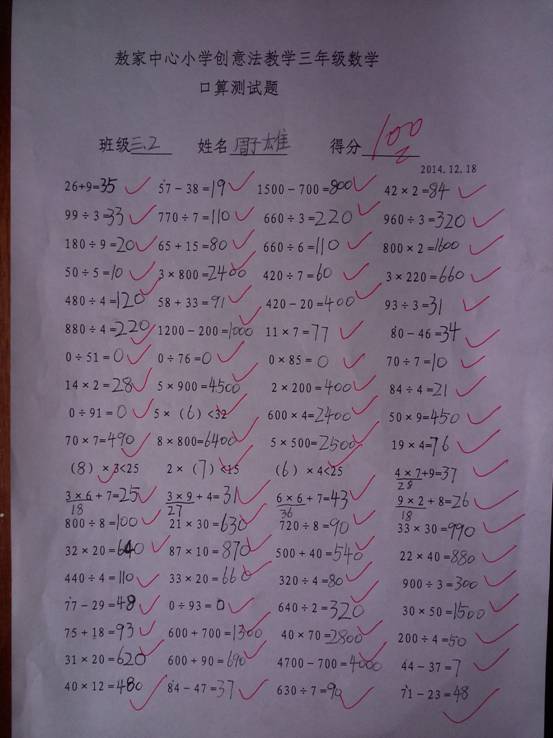 敖家中心小学创意法教学三年级数学
口算测试题
班级三.2 姓名周子雄 得分100
2014.12.18
26+9=35 57-38=19 1500-700=800 42×2=84
99÷3=33 770÷7=110 660÷3=220 960÷3=320
180÷9=20 65+15=80 660÷6=110 800×2=1600
50÷5=10 3×800=2400 420÷7=60 3×220=660
480÷4=120 58+33=91 420-20=400 93÷3=31
880÷4=220 1200-200=1000 11×7=77 80-46=34
0÷51=0 0÷76=0 0×85=0 70÷7=10
14×2=28 5×900=4500 2×200=400 84÷4=21
0÷91=0 5×(6)<32 600×4=2400 50×9=450
70×7=490 8×800=6400 5×500=2500 19×4=76
(8)×3<25 2×(7)<15 (6)×4<25 4×7+9=37
28
3×6+7=25 3×9+4=31 6×6+7=43 9×2+8=26
18 27 36 18
800÷8=100 21×30=630 720÷8=90 33×30=990
32×20=640 87×10=870 500+40=540 22×40=880
440÷4=110 33×20=660 320÷4=80 900÷3=300
77-29=48 0÷93=0 640÷2=320 30×50=1500
75+18=93 600+700=1300 40×70=2800 200÷4=50
31×20=620 600+90=690 4700-700=4000 44-37=7
40×12=480 84-47=37 630÷7=90 71-23=48